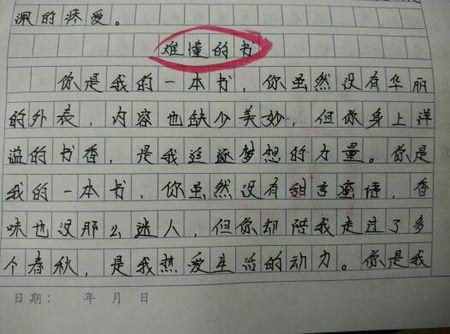 深的疼爱。
难懂的书
你是我的一本书，你虽然没有华丽
的外表，内容也缺少美妙，但你身上洋
溢的书香，是我追逐梦想的力量。你是
我的一本书，你虽然没有甜言蜜语，香
味也没那么迷人，但你却陪我走过了多
个春秋，是我热爱生活的动力。你是我
日期： 年 月 日